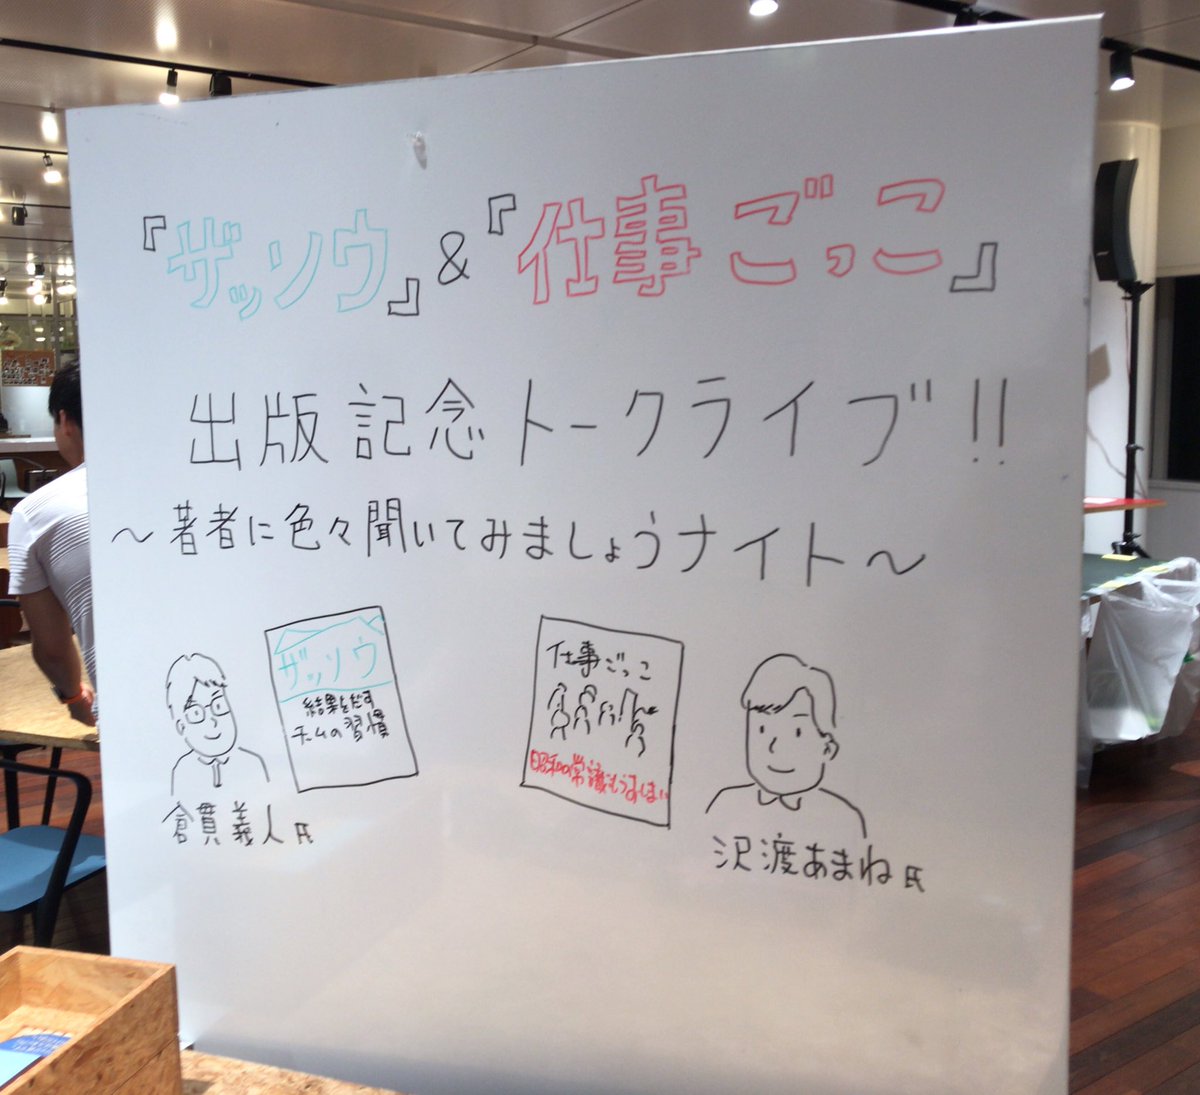 『ザッソウ』&『仕事ごっこ』
出版記念トークライブ!!
～著者に色々聞いてみましょうナイト～
ザッソウ
結果をだす
チームの習慣
倉貫義人氏
仕事ごっこ
昭和の常識もうおしまい
沢渡あまね氏